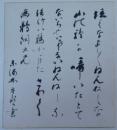 泣くなよしよしねんねしな
山の鴉が啼いたとて
泣いちゃいけないねんねしな
泣けば鴉が又さわぐ
東海林太郎